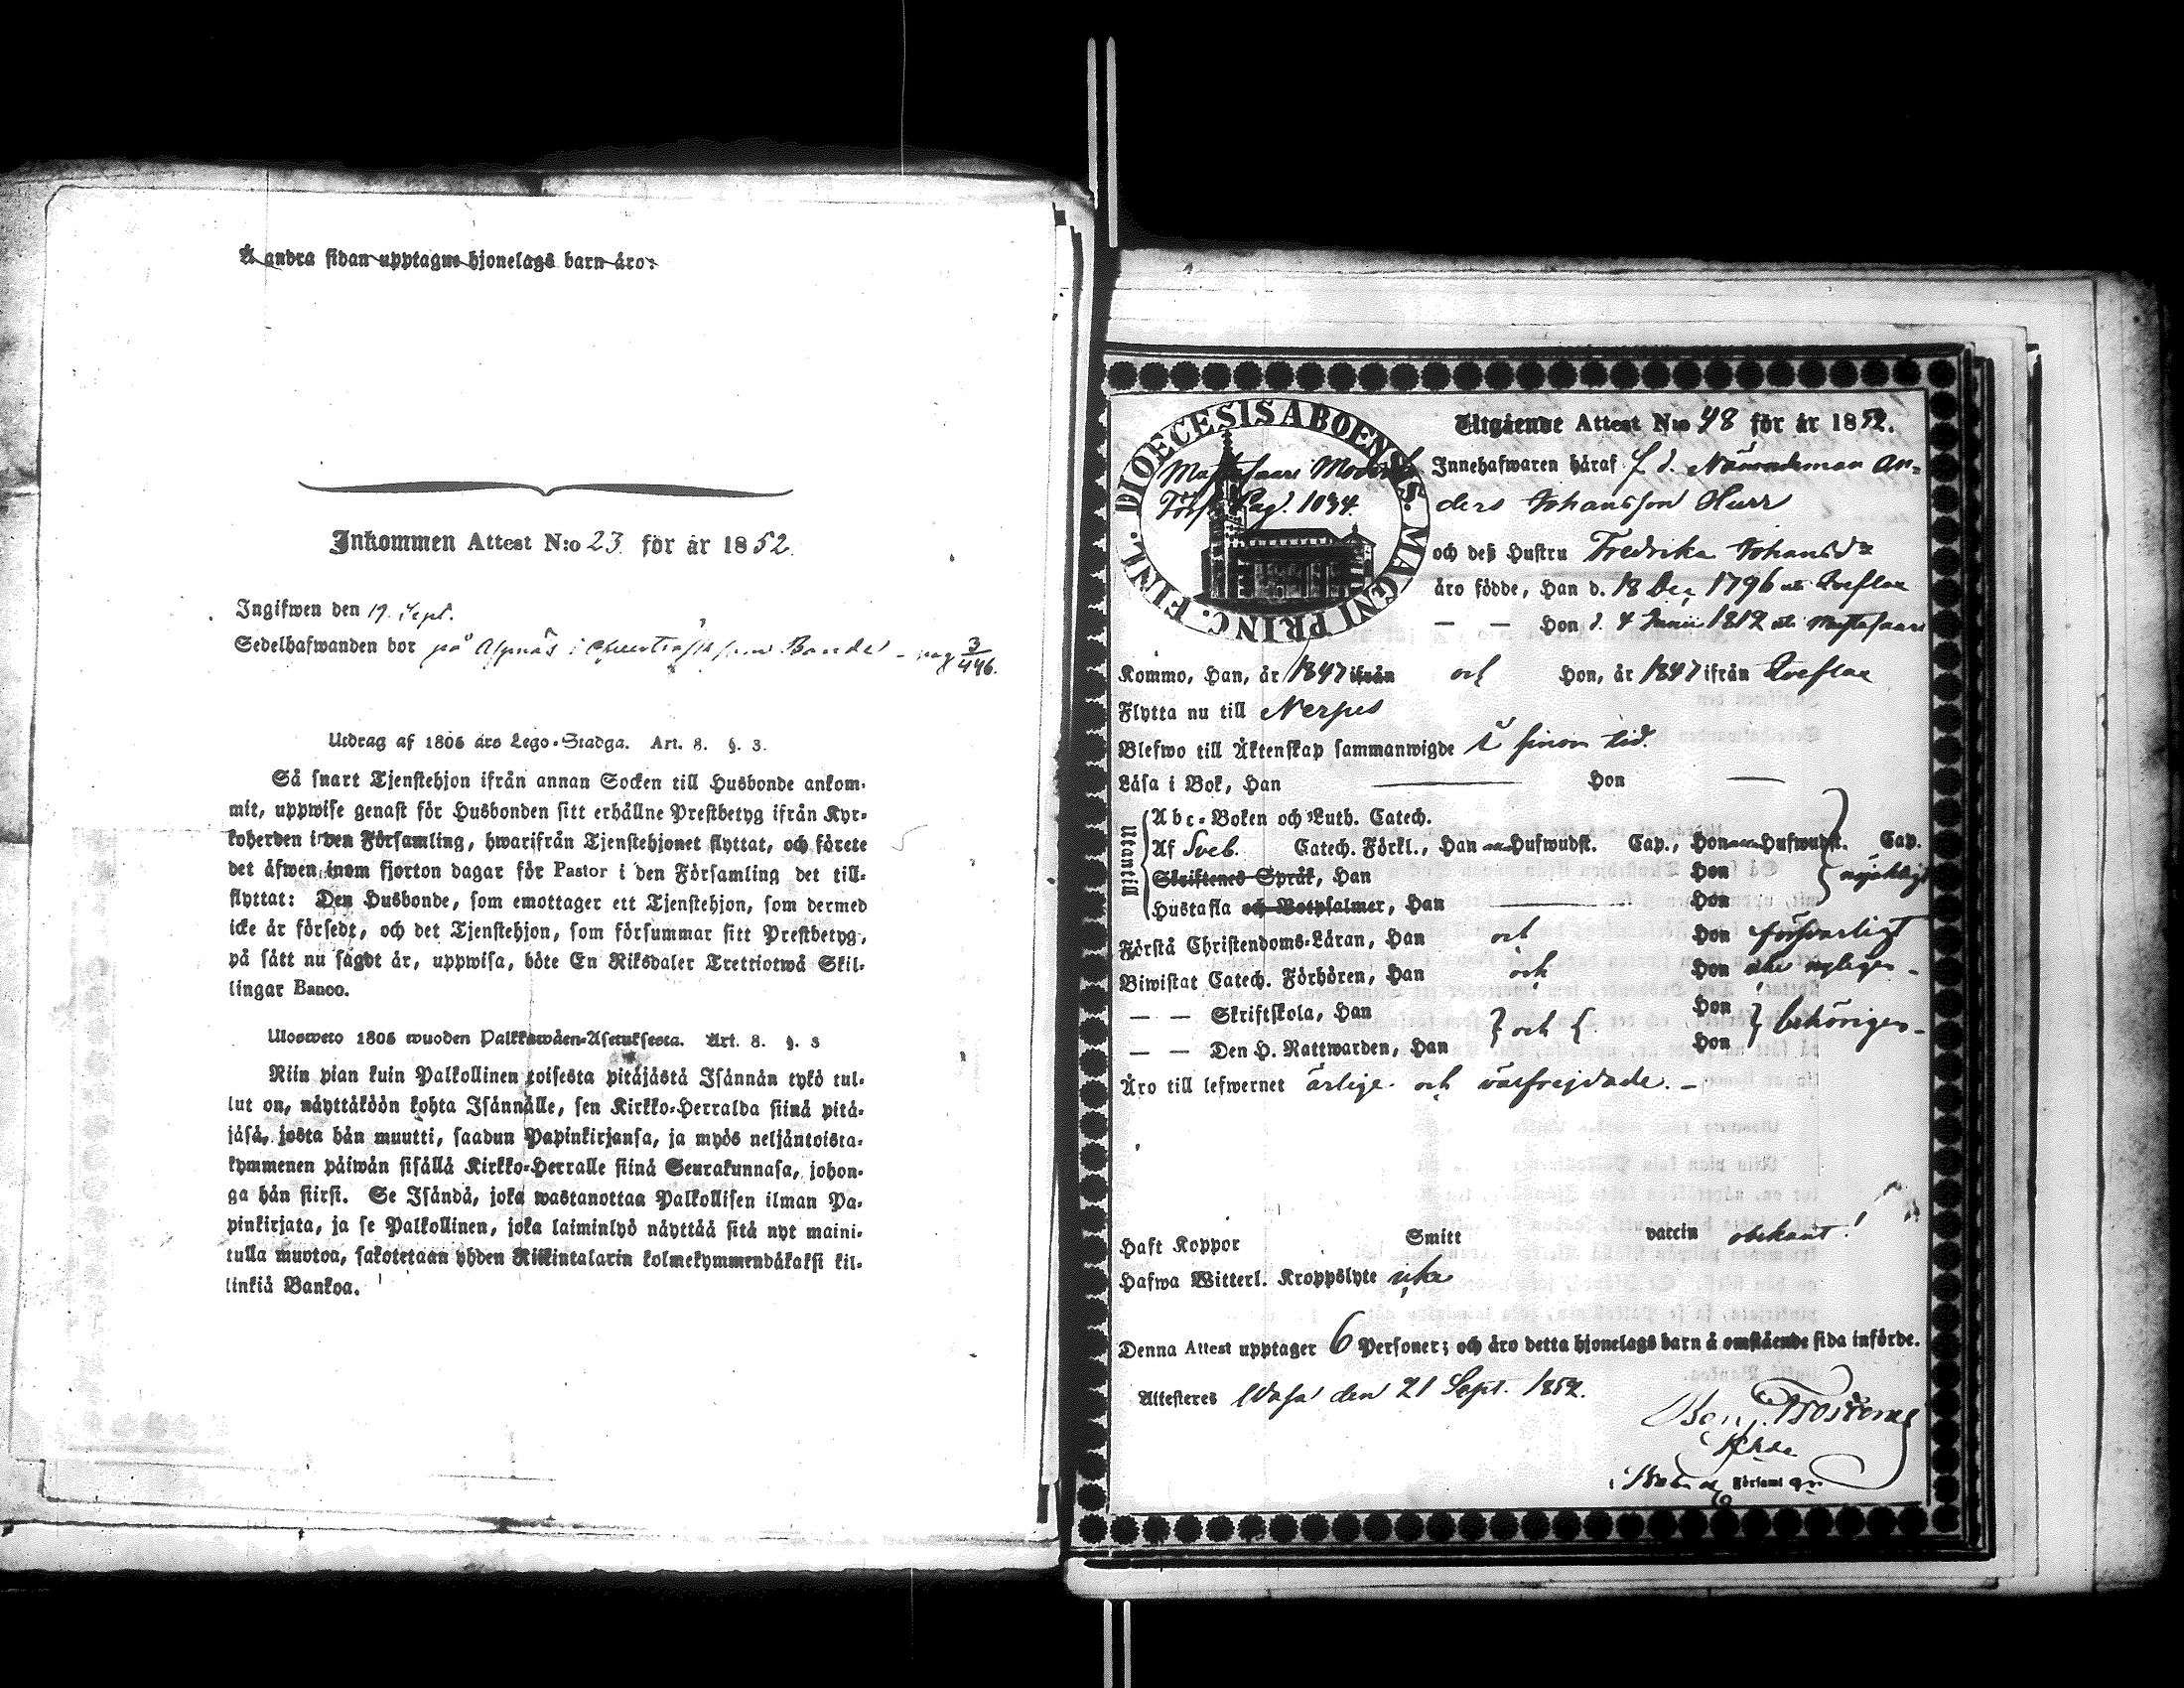 Å andra sidan upptagne hjonelags barn äro:
Inkommen Attest N:o 23 för år 1852.
Ingifwen den 19 Sept.
Sedelhafwanden bor på
Utdrag af 1805 års Lego-Stadga. Art. 8. §. 3.
Så snart Tjenstehjon ifrån annan Socken till Husbonde ankom-
mit, uppwise genast för Husbonden sitt erhållne Prestbetyg ifrån Kyr-
koherden i den Församling, hwarifrån Tjenstehjonet flyttat, och förete
det äfwen inom fjorton dagar för Pastor i den Församling det till-
flyttat: Den Husbonde, som emottager ett Tjenstehjon, som dermed
icke är försedt, och det Tjenstehjon, som försummar sitt Prestbetyg,
på sätt nu sagdt är, uppwisa, böte En Riksdaler Trettiotwå Skil-
lingar Banco.
Ulosweto 1805 wuoden Palkkawäen-Asetuksesta. Art. 8. §. 3
Niin pian kuin Palkollinen toisesta pitäjästä Isännän tykö tul-
lut on, näyttäköön kohta Isännälle, sen Kirkko-Herralda siinä pitä-
jäsä, josta hän muutti, saadun Papinkirjansa, ja myös neljäntoista-
kymmenen päiwän sisällä Kirkko-Herralle siinä Seurakunnasa, johon-
ga hän siirst. Se Isändä, joka wastanottaa Palkollisen ilman Pa-
pinkirjata, ja se Palkollinen, joka laiminlyö näyttää sitä nyt maini-
tulla muotoa, sakotetaan yhden Riikintalarin kolmekymmendäkaksi kil-
linkiä Bankoa.
DIOECESIS ABOENSIS. MAGNI PRINC. FINL.
Pag. 1034.
Utgående Attest N:o 48 för år 1852.
Innehafwaren häraf f. d. Nämndeman An-
ders Johansson Hurr
och deß Hustru Fredrika Johansd:r
äro födde, Han d. 18 Dec 1796 uti Qveflax
— — Hon d. 4 Junii 1812 uti Mustasaari
Kommo, Han, år 1847 ifrån och Hon, år 1847 ifrån Qveflax
Flytta nu till Nerpes
Blefwo till Äktenskap sammanwigde i sinom tid.
Läsa i Bok, Han — Hon —
Utantill
Abc-Boken och Luth. Catech.
Af Sveb. Catech. Förkl., Han Hufwudst. Cap., Hon Hufwudst. Cap.
Skriftenes Språk, Han Hon nöjaktigt
Hustafla och Botpsalmer, Han — Hon
Förstå Christendoms-Läran, Han och Hon försvarligt
Biwistat Catech. Förhören, Han och Hon
— — Skriftskola, Han Hon
— — Den H. Nattwarden, Han } och { Hon } behörigen —
Äro till lefwernet ärlige och välfrejdade. —
Haft Koppor Smitt vaccin obekant!
Hafwa Witterl. Kroppslyte icke
Denna Attest upptager 6 Personer; och äro detta hjonelags barn å omstående sida införde.
Attesteres Wasa den 21 Sept. 1852.
Församl